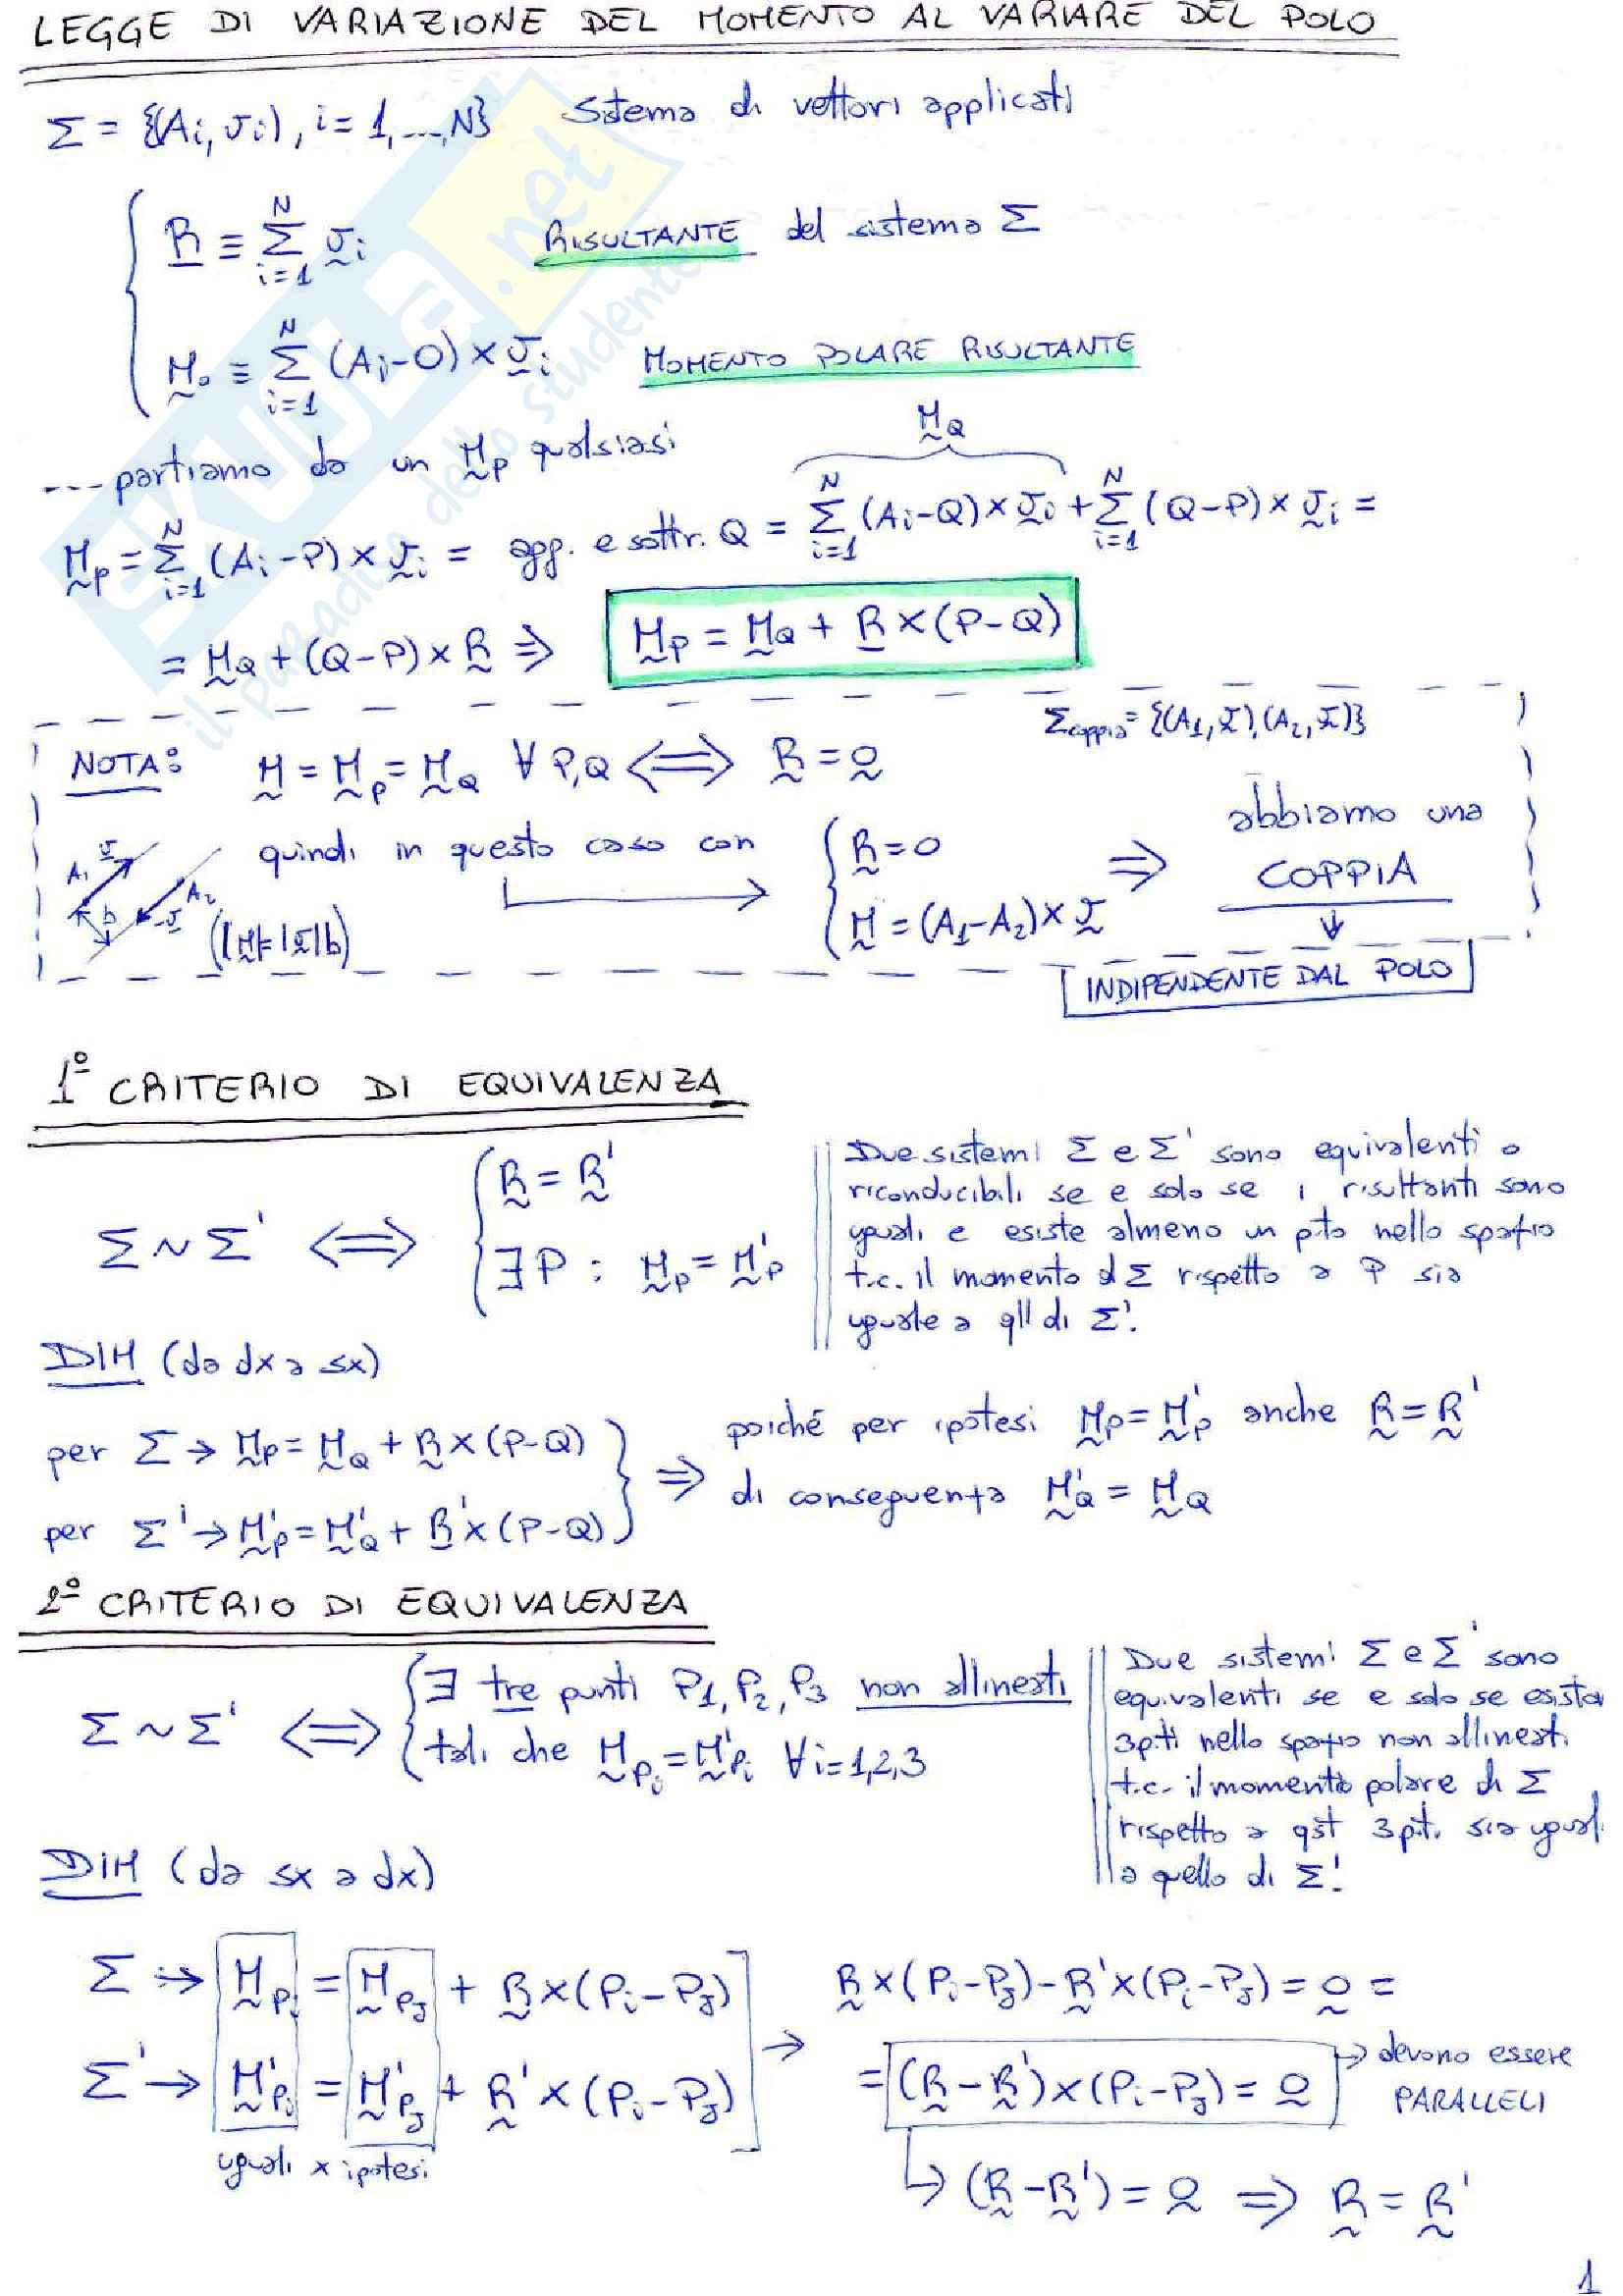 LEGGE DI VARIAZIONE DEL MOMENTO AL VARIARE DEL POLO
Σ = {(Ai, vi), i = 1, ..., N} Sistema di vettori applicati
R ≡ Σ_{i=1}^{N} vi RISULTANTE del sistema Σ
Mo ≡ Σ_{i=1}^{N} (Ai-O) × vi MOMENTO POLARE RISULTANTE
--- partiamo da un Mp qualsiasi
MQ
Mp = Σ_{i=1}^{N} (Ai-P) × vi = agg. e sottr. Q = Σ_{i=1}^{N} (Ai-Q) × vi + Σ_{i=1}^{N} (Q-P) × vi =
= MQ + (Q-P) × R ⇒ Mp = MQ + R × (P-Q)
Σcoppia = {(A1, v), (A2, v)}
NOTA: M = Mp = MQ ∀ P,Q ⟺ R = 0
quindi in questo caso con { R = 0 ⇒ abbiamo una
M = (A1-A2) × v COPPIA
A1 v A2 b -v (|M|=|v|b)
INDIPENDENTE DAL POLO
1º CRITERIO DI EQUIVALENZA
Σ ~ Σ' ⟺ { R = R'
∃ P : Mp = M'p
Due sistemi Σ e Σ' sono equivalenti o
riconducibili se e solo se i risultanti sono
uguali e esiste almeno un pto nello spazio
t.c. il momento d Σ rispetto a P sia
uguale a qll di Σ'.
DIM (da dx a sx)
per Σ → Mp = MQ + R × (P-Q)
per Σ' → M'p = M'Q + R' × (P-Q)
⇒ poiché per ipotesi Mp = M'p anche R = R'
di conseguenza M'Q = MQ
2º CRITERIO DI EQUIVALENZA
Σ ~ Σ' ⟺ { ∃ tre punti P1, P2, P3 non allineati
tali che MPi = M'Pi ∀ i = 1,2,3
Due sistemi Σ e Σ' sono
equivalenti se e solo se esista
3 pti nello spazio non allineati
t.c. il momento polare di Σ
rispetto a qst 3 pt. sia ugual
a quello di Σ'.
DIM (da sx a dx)
Σ → MPi = MPj + R × (Pi-Pj)
Σ' → M'Pi = M'Pj + R' × (Pi-Pj)
uguali x ipotesi
→ R × (Pi-Pj) - R' × (Pi-Pj) = 0 =
= (R-R') × (Pi-Pj) = 0 → devono essere
PARALLELI
↳ (R-R') = 0 ⇒ R = R'
1
SKUOLA.net
il paradiso dello studente